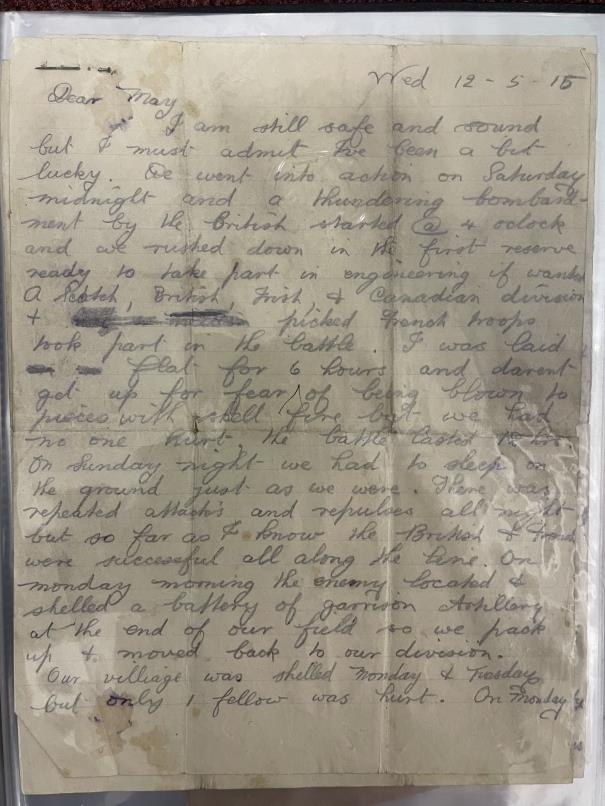 Wed 12-5-15
Dear May
I am still safe and sound
but I must admit I've been a bit
lucky. We went into action on Saturday
midnight and a thundering bombard-
ment by the British started @ 4 oclock
and we rushed down in the first reserve
ready to take part in engineering if wanted
A Scotch, British, Irish, & Canadian division
+ picked French troops
took part in the battle. I was laid
flat for 6 hours and darent
get up for fear of being blown to
pieces with shell fire but we had
no one hurt, the battle lasted
On Sunday night we had to sleep on
the ground just as we were. There was
repeated attacks and repulses all night
but so far as I know the British & French
were successful all along the line. On
monday morning the enemy located &
shelled a battery of garrison Artillery
at the end of our field so we pack
up & moved back to our division.
Our villiage was shelled Monday & Tuesday
but only 1 fellow was hurt. On Monday